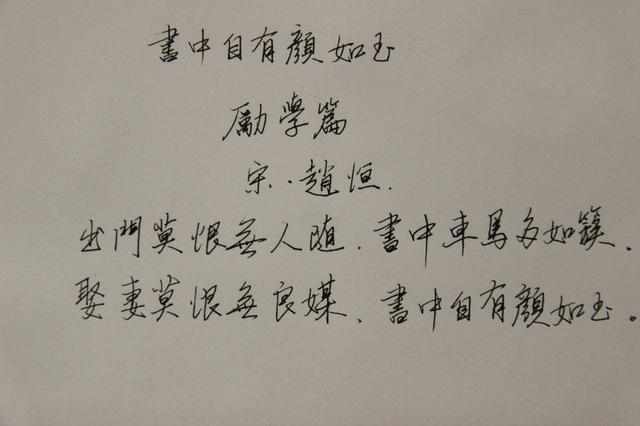 書中自有顔如玉
励學篇
宋·趙恒.
出門莫恨無人随.書中車馬多如簇.
娶妻莫恨無良媒、書中自有顔如玉。